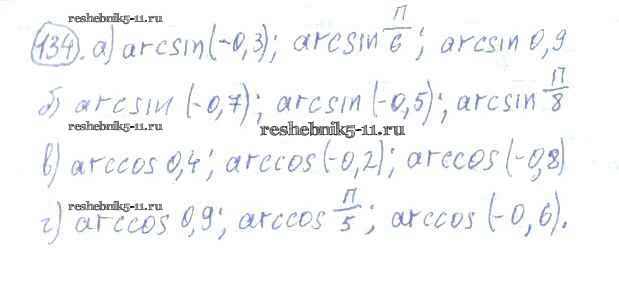 reshebnik5-11.ru
134. а) arcsin(-0,3); arcsin π/6; arcsin 0,9
reshebnik5-11.ru
б) arcsin (-0,7); arcsin (-0,5); arcsin π/8
reshebnik5-11.ru
reshebnik5-11.ru
в) arccos 0,4; arccos (-0,2); arccos (-0,8)
reshebnik5-11.ru
г) arccos 0,9; arccos π/5; arccos (-0,6).